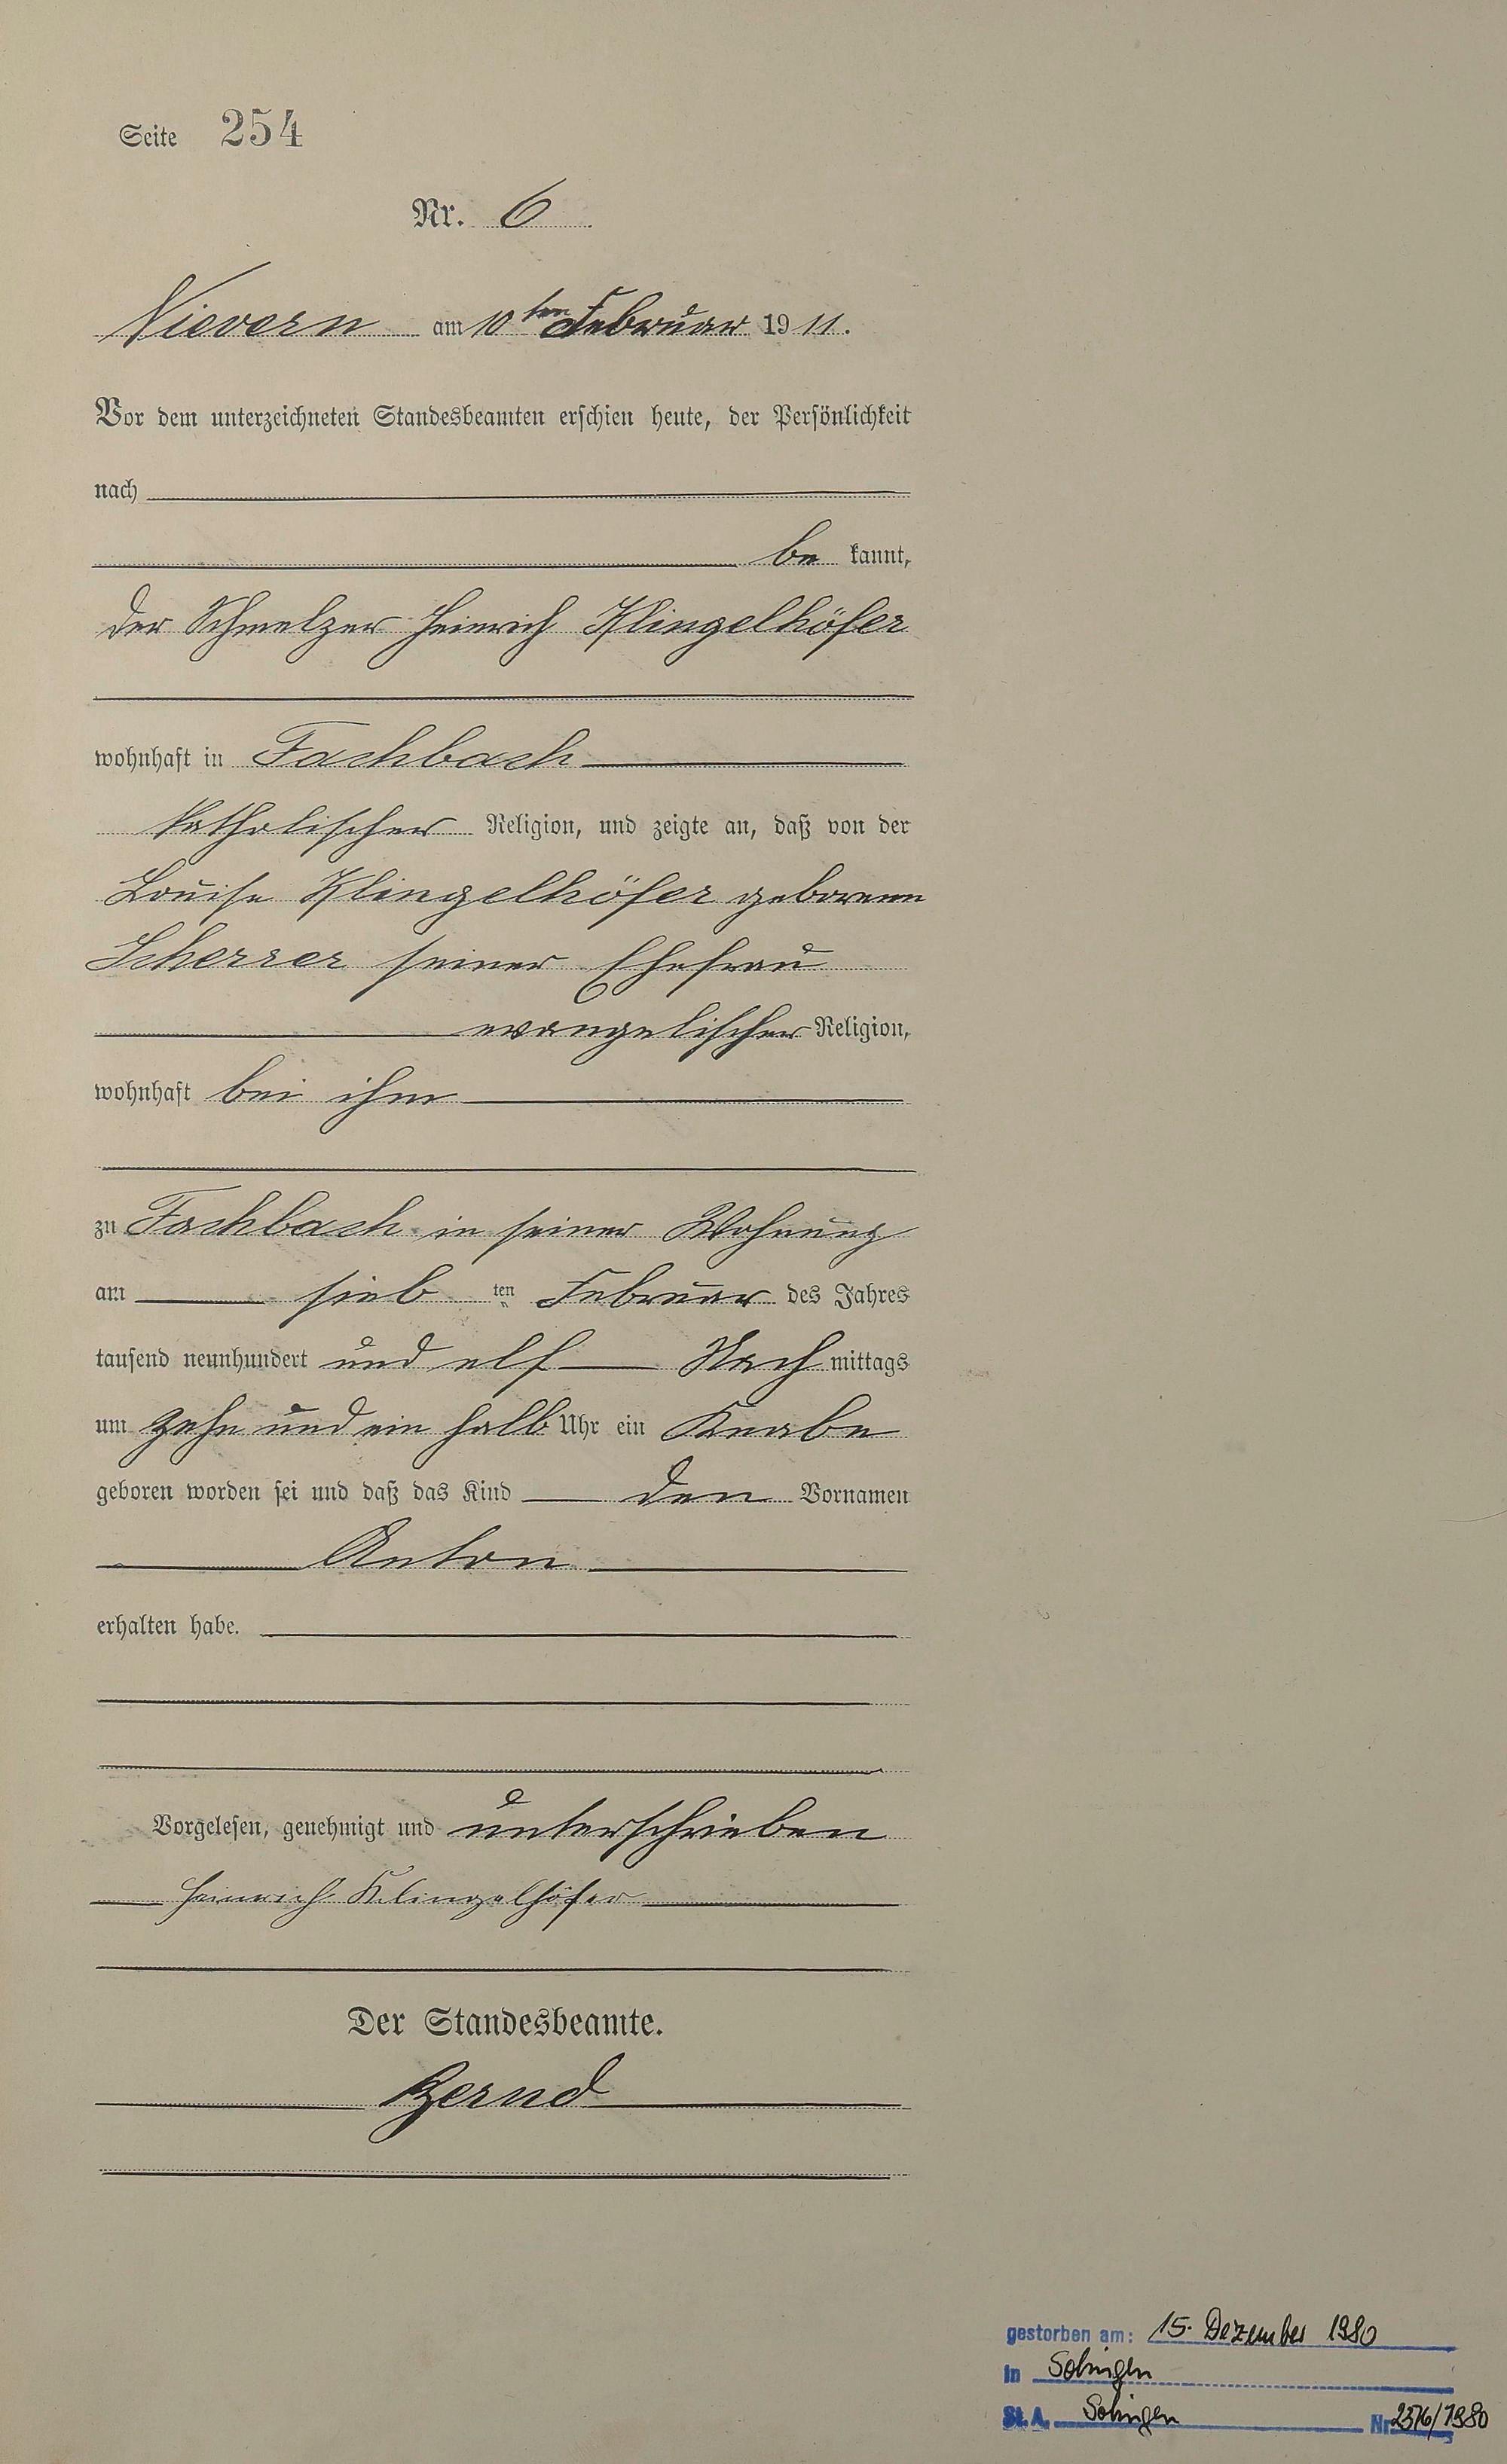 Seite 254
Nr. 6
Nievern am 10ten Februar 1911.
Vor dem unterzeichneten Standesbeamten erschien heute, der Persönlichkeit
nach
be kannt,
der Schmelzer Heinrich Klingelhöfer
wohnhaft in Fachbach
katholischer Religion, und zeigte an, daß von der
Louise Klingelhöfer geborenen
Scherrer seiner Ehefrau
evangelischer Religion,
wohnhaft bei ihm
zu Fachbach in seiner Wohnung
am sieb ten Februar des Jahres
tausend neunhundert und elf Nach mittags
um zehn und ein halb Uhr ein Knabe
geboren worden sei und daß das Kind den Vornamen
Anton
erhalten habe.
Vorgelesen, genehmigt und unterschrieben
Heinrich Klingelhöfer
Der Standesbeamte.
Zernd
gestorben am: 15. Dezember 1980
in Solingen
St. A. Solingen Nr. 2376/1980